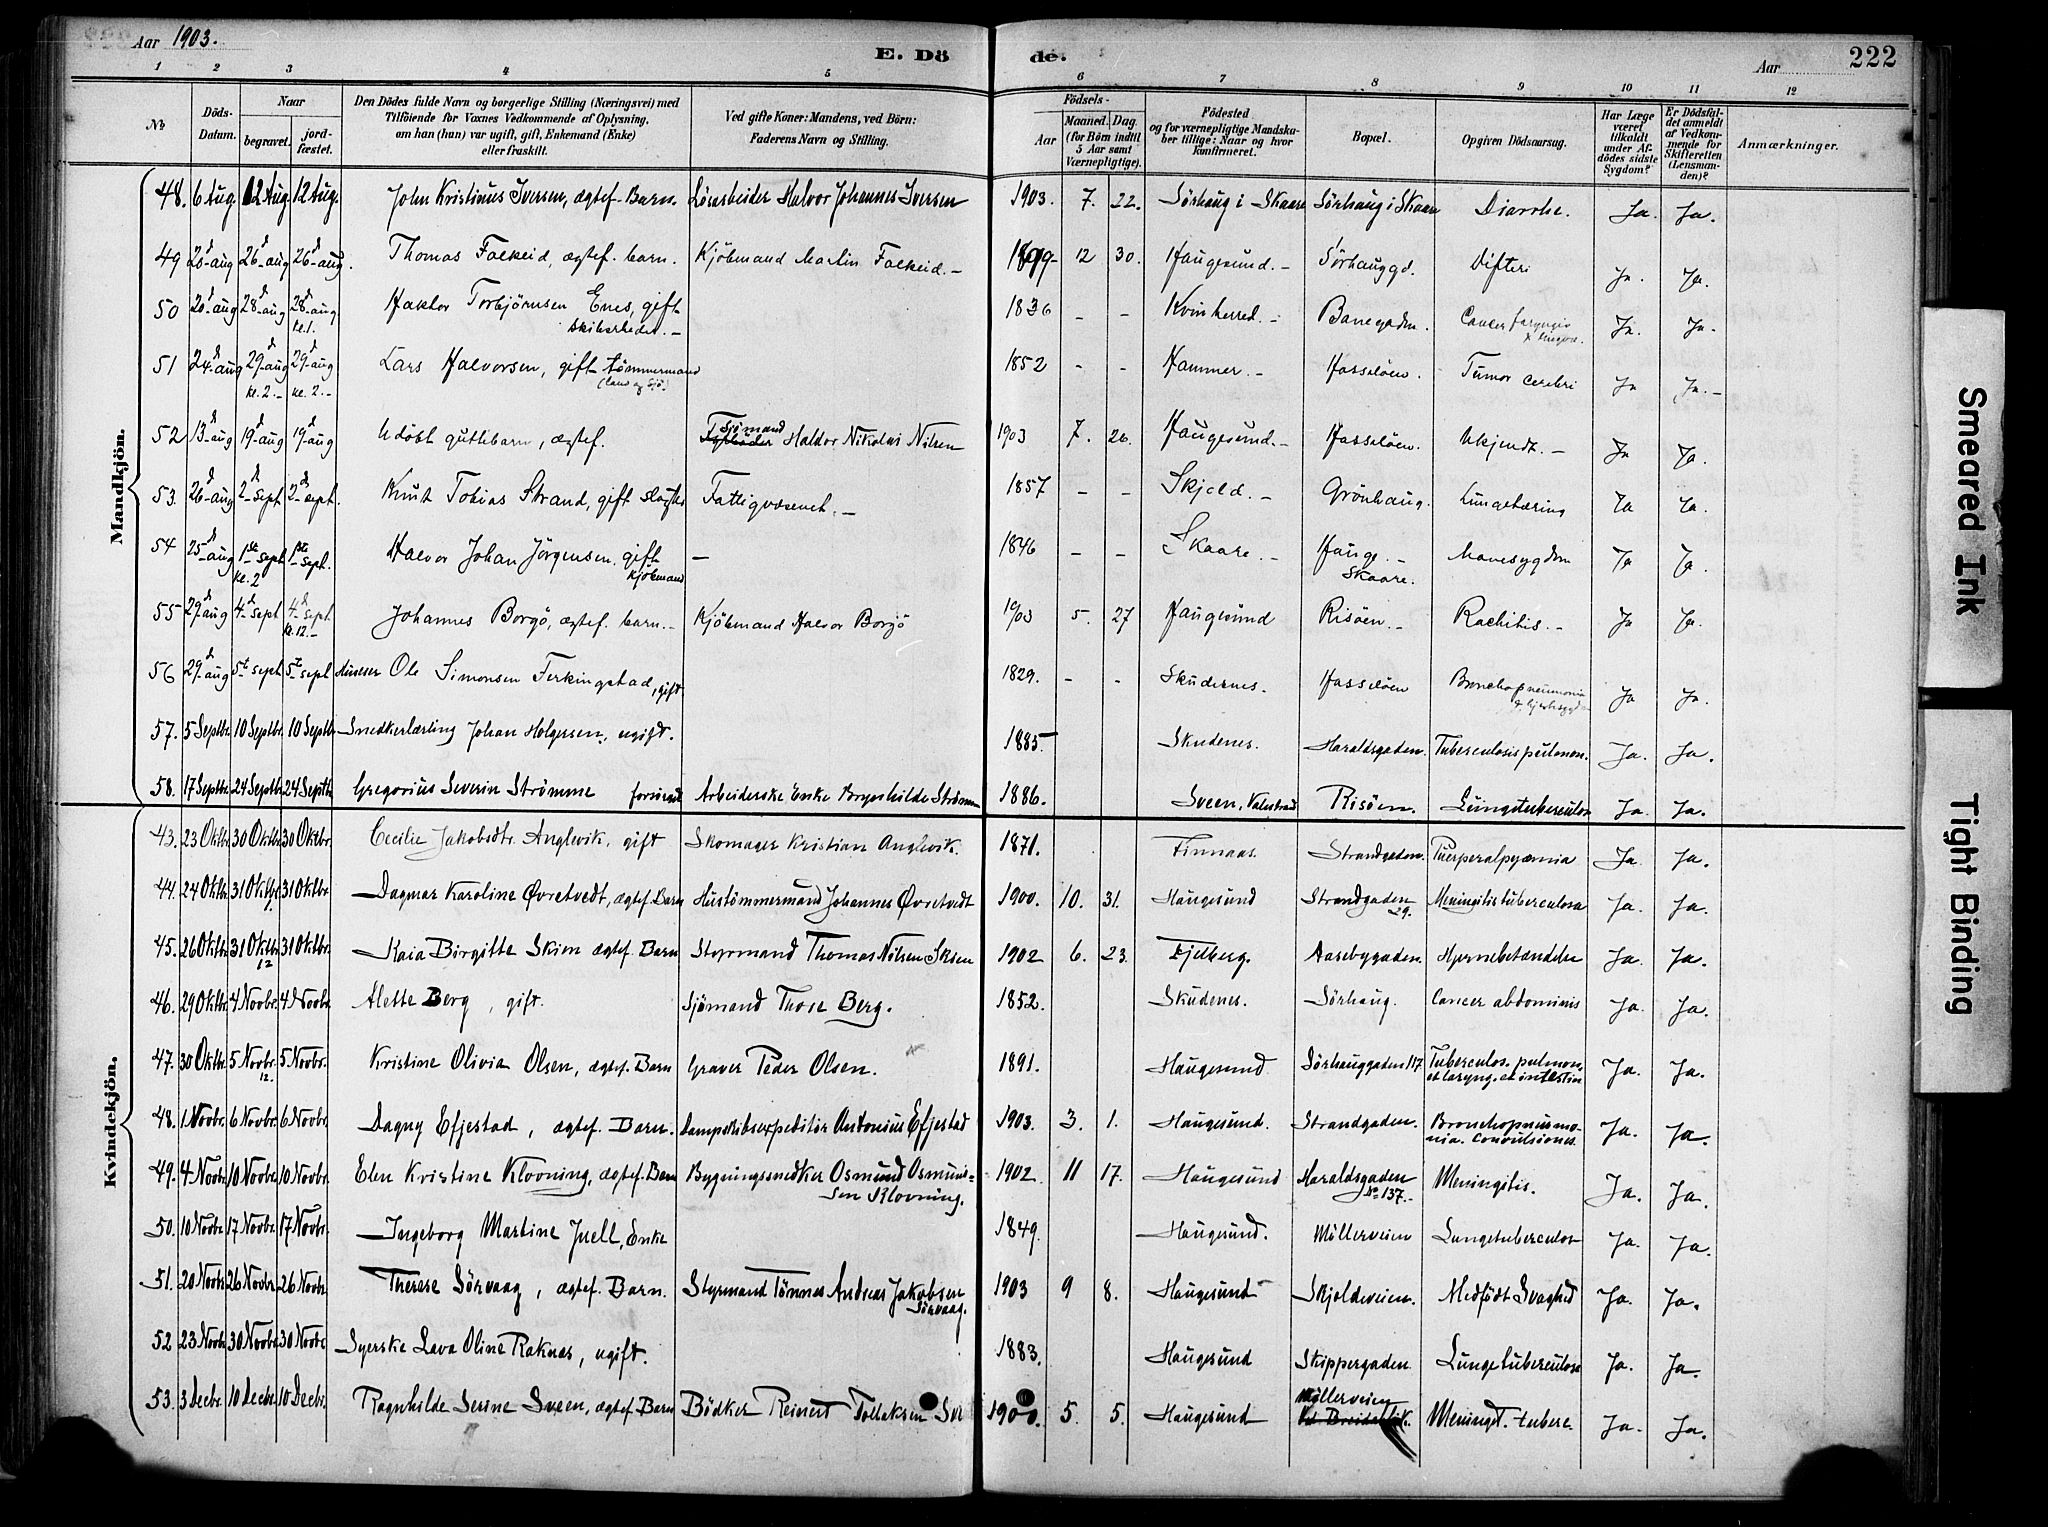 Aar 1903.
E. Dö
de.
Aar
222
1 2 3 4 5 6 7 8 9 10 11 12
№
Döds-Datum.
Naar
begravet.
jordfæstet.
Den Dödes fulde Navn og borgerlige Stilling (Næringsvei) med
Tilföiende for Voxnes Vedkommende af Oplysning,
om han (hun) var ugift, gift, Enkemand (Enke)
eller fraskilt.
Ved gifte Koner: Mandens, ved Börn:
Faderens Navn og Stilling.
Födsels-
Aar
Maaned. Dag.
(for Börn indtil
5 Aar samt
Værnepligtige).
Födested
og for værnepligtige Mandskaber tillige: Naar og hvor
konfirmeret.
Bopæl.
Opgiven Dödsaarsag.
Har Læge
været
tilkaldt
under Afdödes sidste
Sygdom?
Er Dödsfaldet anmeldt
af Vedkommende for
Skifteretten
(Lensmanden)?
Anmærkninger.
Mandkjön.
48. 6 Aug. 12 Aug. 12 Aug. John Kristinus Iversen, ægtef. Barn. Lösarbeider Halvor Johannes Iversen 1903. 7. 22. Sörhaug i Skaare Sörhaug i Skaare Diarrhe. Ja. Ja.
49 26 aug 26 aug. Thomas Falkeid, ægtef. barn. Kjöbmand Martin Falkeid. – 1899 – 12 30. Haugesund. – Sörhauggd. Difteri Ja. Ja.
50 28 aug 28 aug kl. 1. Torbjörnsen Enes, gift – 1836 – – Kvinherred. – Banegaden. Cancer Ja. Ja.
51 24 aug 29 aug kl. 2. – 29 aug kl. 2. – Lars Halvorsen, gift – tömmermand (land og sjö) 1852 – – Hammer. – Hasselöen. Tumor cerebri Ja Ja. –
52 13 aug 19 aug 19 aug Udöbt guttebarn, ægtef. Sjömand Haldor Nikolai Nilsen 1903 7. 26. Haugesund. – Hasselöen. Ukjendt. – Ja Ja.
53. 26 aug 2 sept 2 sept. Knut Tobias Strand, gift Fattigvæsenet. – 1857 – – Skjold. – Grönhaug. Lungetæring Ja Ja.
54 25 aug 1ste sept kl. 2 1ste sept. Halvor Johan Jörgensen, gift kjöbmand – 1846 – – Skaare. – Hauge. – Skaare. Mavesygdom Ja Ja.
55 29 aug 4 sept 4 sept kl. 12. – Johannes Borgö, ægtef. barn. – Kjöbmand Halvor Borgö 1903 5. 27 Haugesund Risöen. – Rachitis. – Ja Ja.
56 29 aug 5t sept 5t sept Ole Simonsen Ferkingstad, gift 1829. – – Skudesnes. Hasselöen Bronchopneumonia Ja Ja.
57. 5 Septbr. 10 Septbr. 10 Septbr. Snedkerlærling Johan Holgersen, ugift. 1885 – Skudenes. Haraldsgaden. Tuberculosis pulmon. Ja. Ja.
58. 17 Septbr. 24 Septbr. 24 Septbr. Gregorius Severin Strömme Arbeiderske Enke Brynhilde Strömme 1886. Sveen, Valestrand Risöen. Lungetuberculose Ja. Ja.
Kvindekjön.
43. 23 Oktbr. 30 Oktbr. 30 Oktbr. Cecilie Jakobsdtr. Anglevik, gift Skomager Kristian Anglevik. 1871. Finnaas. Strandgaden. Puerperalpyæmia Ja. Ja.
44. 24 Oktbr. 31 Oktbr. 31 Oktbr. Dagmar Karoline Øvretvedt, ægtef. Barn Hustömmermand Johannes Øvretvedt 1900. 10. 31. Haugesund Strandgaden 29. Meningitis tuberculosa Ja. Ja.
45. 26 Oktbr. 31 Oktbr. 12 31 Oktbr. Kaia Birgitte ægtef. Barn Styrmand Thomas Nilsen 1902 6. 23. Fjelberg. Aasebygaden. Hjernebetændelse Ja. Ja.
46. 29 Oktbr. 4 Novbr. 4 Novbr. Alette Berg, gift. Sjömand Thore Berg. 1852. Skudenes. Sörhaug. Cancer abdominis Ja. Ja.
47. 30 Oktbr. 5 Novbr. 12. 5 Novbr. Kristine Olivia Olsen, ægtef. Barn Graver Peder Olsen. 1891. Haugesund Sörhauggaden 117 Tuberculos. pulmon. et laryng. et intestin Ja. Ja.
48. 1 Novbr. 6 Novbr. 6 Novbr. Dagny Efjestad, ægtef. Barn. Dampskibsexpeditör Antonius Efjestad 1903. 3. 1. Haugesund. Strandgaden. Bronchopneumonia. Convulsiones. Ja. Ja.
49. 4 Novbr. 10 Novbr. 10 Novbr. Elen Kristine Klovning, ægtef. Barn Bygningssnedker Osmund Osmundsen Klovning. 1902. 11 17. Haugesund Haraldsgaden № 137. – Meningitis. Ja. Ja.
50. 10 Novbr. 17 Novbr. 17 Novbr. Ingeborg Martine Juell, Enke 1849. Haugesund. Möllerveien Lungetuberculose Ja. Ja.
51. 20 Novbr. 26 Novbr. 26 Novbr. Therese Sörvaag, ægtef. Barn. Styrmand Tönnes Andreas Jakobsen Sörvaag. 1903 9 8. Haugesund Skjoldeveien. Medfödt Svaghed Ja. Ja.
52 23 Novbr. 30 Novbr. 30 Novbr. Syerske Lava Oline Raknes, ugift. 1883. Haugesund Skippergaden Lungetuberculose Ja. Ja.
53. 3 Decbr. 10 Decbr. 10 Decbr. Ragnhilde Serine Sveen, ægtef. Barn Bödker Reinert Tollaksen 1900. 5. 5. Haugesund Möllerveien Meningit. tuberc. Ja. Ja.
Smeared Ink
Tight Binding